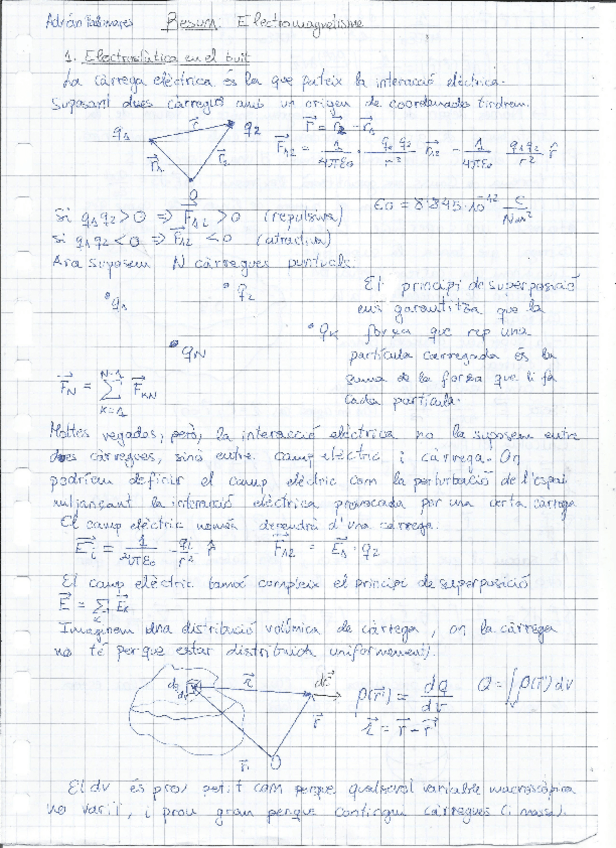 Adrián Resum Electromagnetisme
1. Electrostàtica en el buit
La càrrega elèctrica és la que pateix la interacció elèctrica.
Suposant dues càrregues amb un origen de coordenades tindrem:
q₁ r⃗ q₂ r⃗ = r⃗₂ - r⃗₁
r⃗₁ r⃗₂ F⃗₁₂ = 1/4πε₀ · q₁q₂/r² r⃗₁₂ = 1/4πε₀ q₁q₂/r² r̂
O
Si q₁q₂ > 0 => F⃗₁₂ > 0 (repulsiva) ε₀ = 8'845·10⁻¹² C/Nm²
si q₁q₂ < 0 => F⃗₁₂ < 0 (atractiva)
Ara suposem N càrregues puntuals.
q₁ q₂ qₖ q_N
El principi de superposició
ens garantitza que la
força que rep una
partícula carregada és la
suma de la força que li fa
cada partícula.
F⃗_N = Σ_{K=1}^{N-1} F⃗_KN
Moltes vegades, però, la interacció elèctrica no la suposem entre
dues càrregues, sinó entre camp elèctric i càrrega. On
podríem definir el camp elèctric com la perturbació de l'espai
mitjançant la interacció elèctrica provocada per una certa càrrega
El camp elèctric només dependrà d'una càrrega.
E⃗ᵢ = 1/4πε₀ qᵢ/r² r̂ F⃗₁₂ = E⃗₁·q₂
El camp elèctric també compleix el principi de superposició
E⃗ = Σₖ E⃗ₖ
Imaginem una distribució volúmica de càrrega, on la càrrega
no té perque estar distribuida uniformement).
r⃗ O ρ(r⃗') = dQ/dv Q = ∫ρ(r⃗) dv
r⃗ = r⃗ - r⃗'
El dv és prou petit com perque qualsevol variable macroscòpica
no varii, i prou gran perque contingui càrregues (i massa).